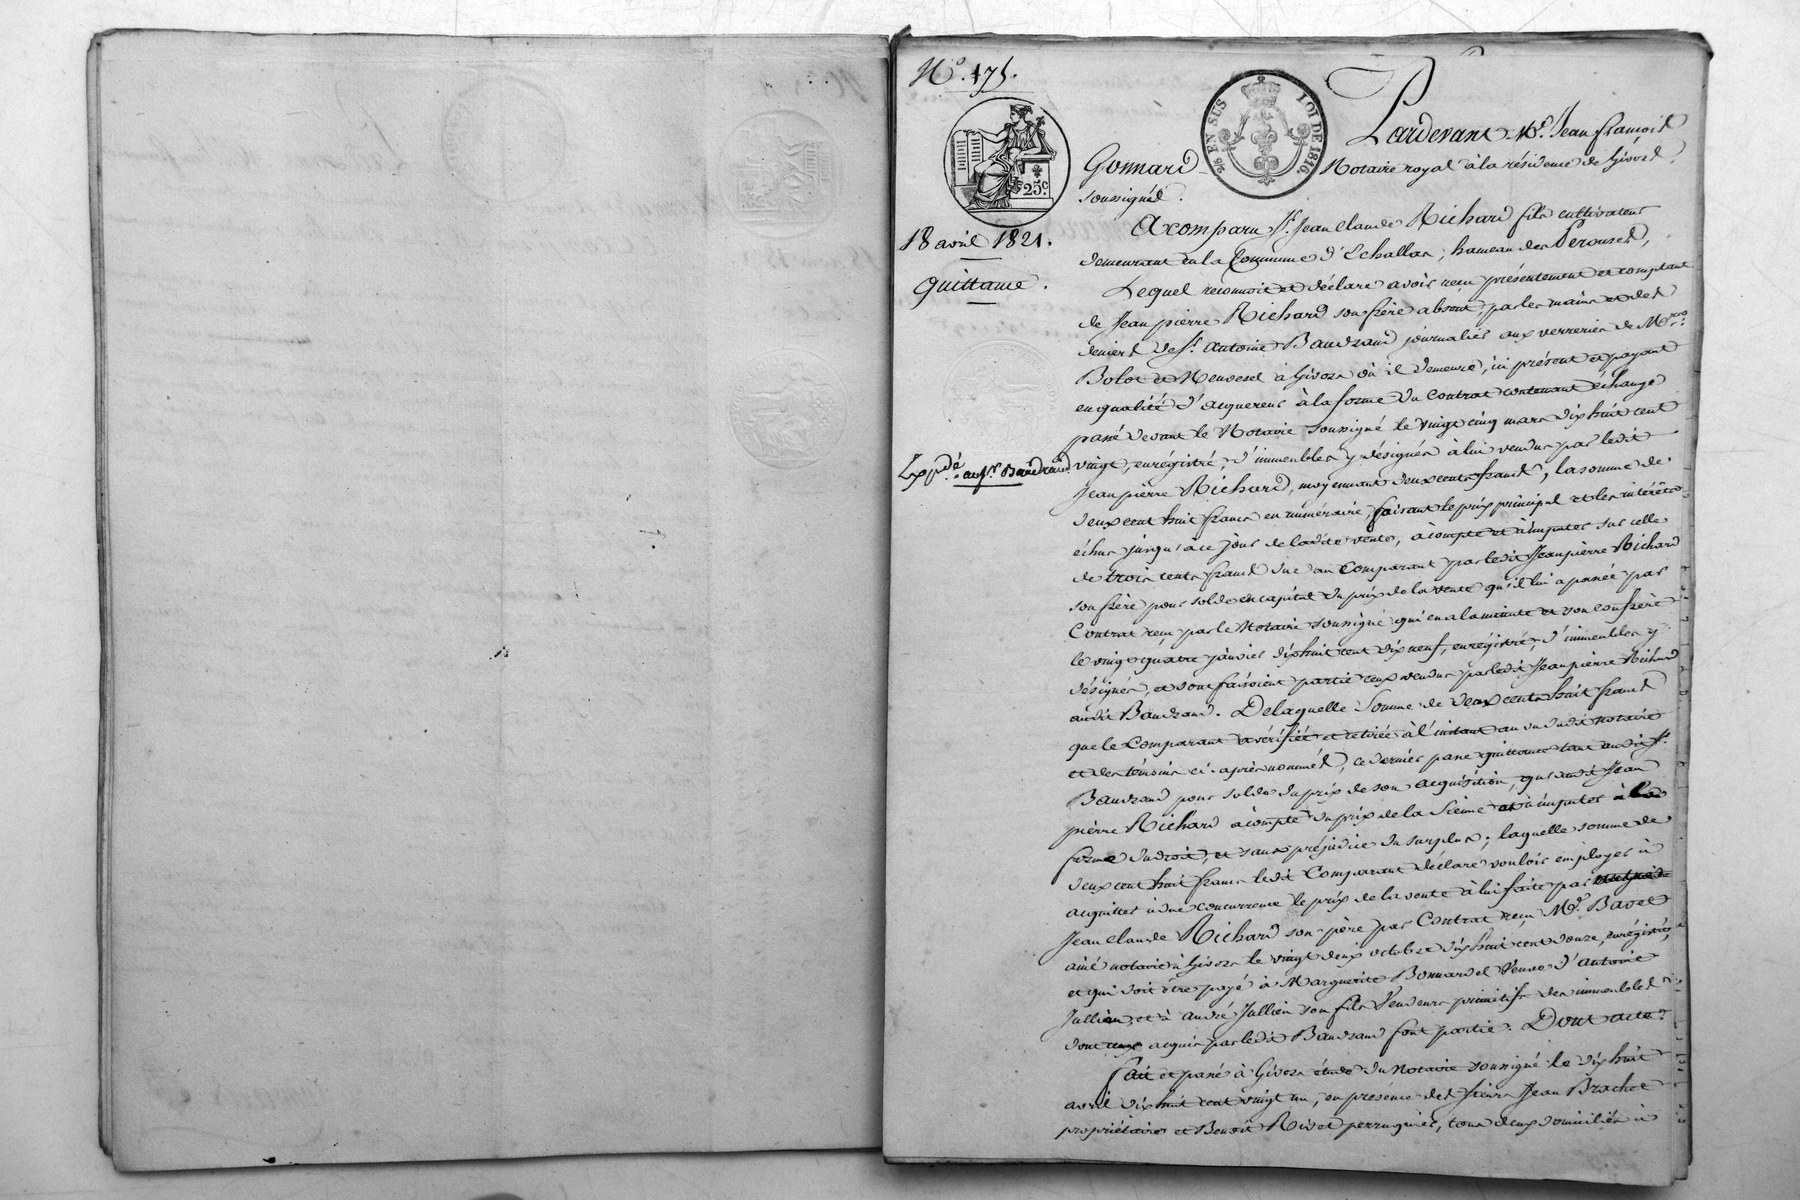 N.° 175.
25c.
25 EN SUS LOI DE 1816.
18 avril 1821.
Quittance.
Expdé. au sr. Baudrand
Pardevant Me. Jean françois
Gonnard Notaire royal à la résidence de Givors,
soussigné.
A comparu Sr. Jean Claude Richard fils cultivateur
demeurant en la Commune d'Echallas, hameau des Perouses,
Lequel reconnoit et déclare avoir reçu présentement et comptant
de Jean pierre Richard son frère absent, par les mains et des
deniers de Sr. antoine Baudrand journalier aux verreries de Mrs.
Bolot et Neuvesel à Givors où il demeure, ici présent et payant
en qualité d'acquereur à la forme du contrat contenant échange
passé devant le Notaire soussigné le vingt cinq mars dix huit cent
vingt, enrégistré, d'immeubles y désignés à lui vendus par ledit
Jean pierre Richard, moyennant deux cents francs, la somme de
deux cent huit francs en numéraire, faisant le prix principal et les intérêts
échus jusqu'à ce jour de ladite vente, à compte et à imputer sur celle
de trois cents francs due au Comparant par ledit Jean pierre Richard
son frère pour solde en capital du prix de la vente qu'il lui a passée par
Contrat reçu par le Notaire soussigné qui en a la minute et son confrère
le vingt quatre janvier dix huit cent dix neuf, enrégistré, d'immeubles y
désignés, et dont faisoient partie ceux vendus par ledit Jean pierre Richard
audit Baudrand. De laquelle somme de deux cents huit francs
que le Comparant a vérifiée et retirée à l'instant au vu dudit notaire
et des témoins ci-après nommés, ce dernier passe quittance tant audit Sr.
Baudrand pour solde du prix de son acquisition, qu'audit Jean
pierre Richard à compte du prix de la sienne et à imputer à la
forme du droit, et sans préjudice du surplus; laquelle somme de
deux cent huit francs ledit Comparant déclare vouloir employer à
acquitter à due concurrence le prix de la vente à lui faite par
Jean Claude Richard son père par Contrat reçu Me. Bavet
ainé notaire à Givors le vingt deux octobre dix huit cent douze, enrégistré,
et qui doit être payé à Marguerite Bonnardel Veuve d'antoine
Jullien et à andré Jullien son fils Vendeurs primitifs des immeubles
dont ceux acquis par ledit Baudrand font partie. Dont acte.
fait et passé à Givors étude du Notaire soussigné le dix huit
avril dix huit cent vingt un, en présence des sieurs Jean Brachet
propriétaire et Benoît Rivet perruquier, tous deux domiciliés à